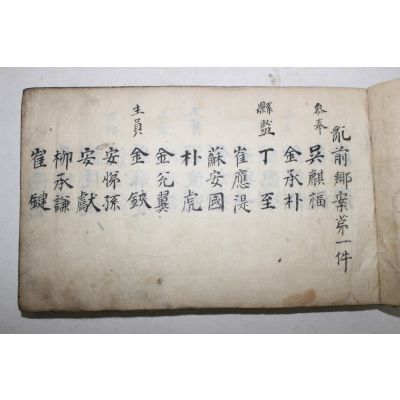 亂前鄕案第一件
參奉 吳麒福
金承朴
縣監 丁至
崔應湜
蘇安國
朴虎
金允翼
生員 金鋏
安勝孫
安獻
柳承謙
崔鍵